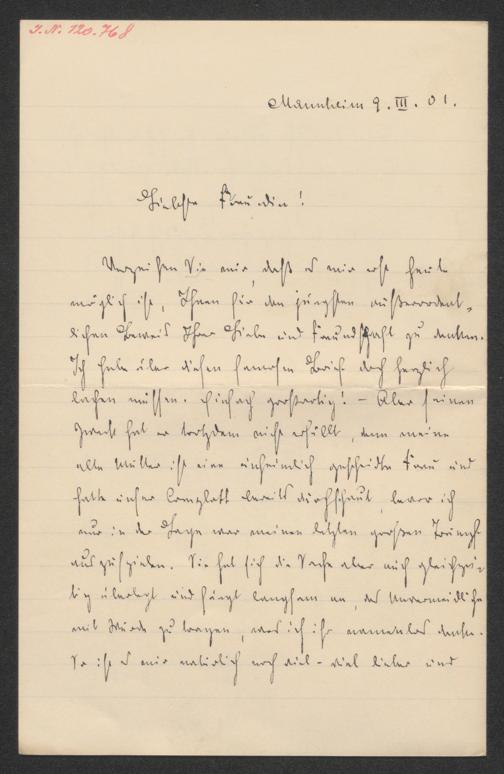 I.N. 120.768
Mannheim 9. III. 01.
Liebste Freundin!
Verzeihen Sie mir, daß es mir erst heute
möglich ist, Ihnen für den jüngsten außerordent-
lichen Beweis Ihrer Liebe und Freundschaft zu danken.
Ich habe über diesen famosen Brief doch herzlich
lachen müssen. Einfach großartig! – Aber seinen
Zweck hat er trotzdem nicht erfüllt, denn meine
alte Mutter ist eine unheimlich gescheidte Frau und
hatte unser Complott bereits durchschaut, bevor ich
nur in der Lage war meinen letzten großen Trumpf
auszuspielen. Sie hat sich die Sache aber auch gleichzei-
tig überlegt und fängt langsam an, das Unvermeidliche
mit Würde zu tragen, was ich ihr namenlos danke.
So ist es mir natürlich noch viel - viel lieber und